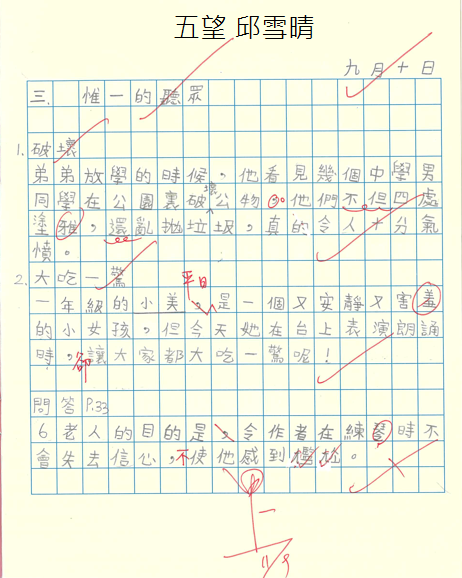 五望 邱雪晴
九月十日
三. 惟一的聽眾
1. 破壞
弟弟放學的時候，他看見幾個中學男
同學在公園裏破壞公物。他們不但四處
塗雅，還亂拋垃圾，真的令人十分氣
憤。
2. 大吃一驚
一年級的小美平日，是一個又安靜又害羞
的小女孩，但今天她在台上表演朗誦
時，卻讓大家都大吃一驚呢！
問答 P.33
6 老人的目的是、令作者在練琴時不
會失去信心，不使他感到尷尬。
11/9